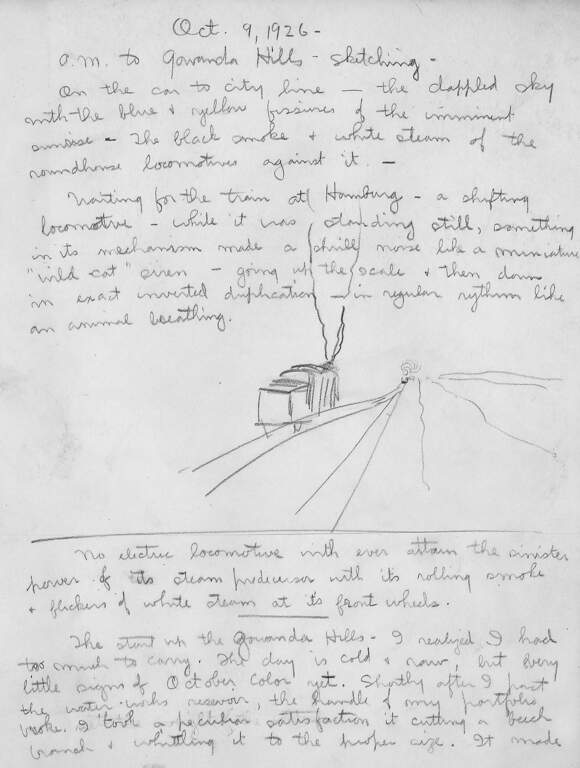 Oct. 9, 1926 -
a.m. to Gowanda Hills - sketching -
On the car to city line — the dappled sky
with the blue & yellow fissures of the imminent
sunrise - The black smoke & white steam of the
roundhouse locomotives against it. —
Waiting for the train at Hamburg - a shifting
locomotive - while it was standing still, something
in its mechanism made a shrill noise like a miniature
"wild cat" siren - going up the scale & then down
in exact inverted duplication — in regular rythm like
an animal breathing.
No electric locomotive with ever attain the sinister
power of its steam predecessor with its rolling smoke
& flickers of white steam at its front wheels.
The start up the Gowanda Hills - I realized I had
too much to carry. The day is cold & raw, but very
little signs of October color yet. Shortly after I past
the water-works reservoir, the handle of my portfolio
broke. I took a peculiar satisfaction it cutting a beech
branch & whittling it to the proper size. It made